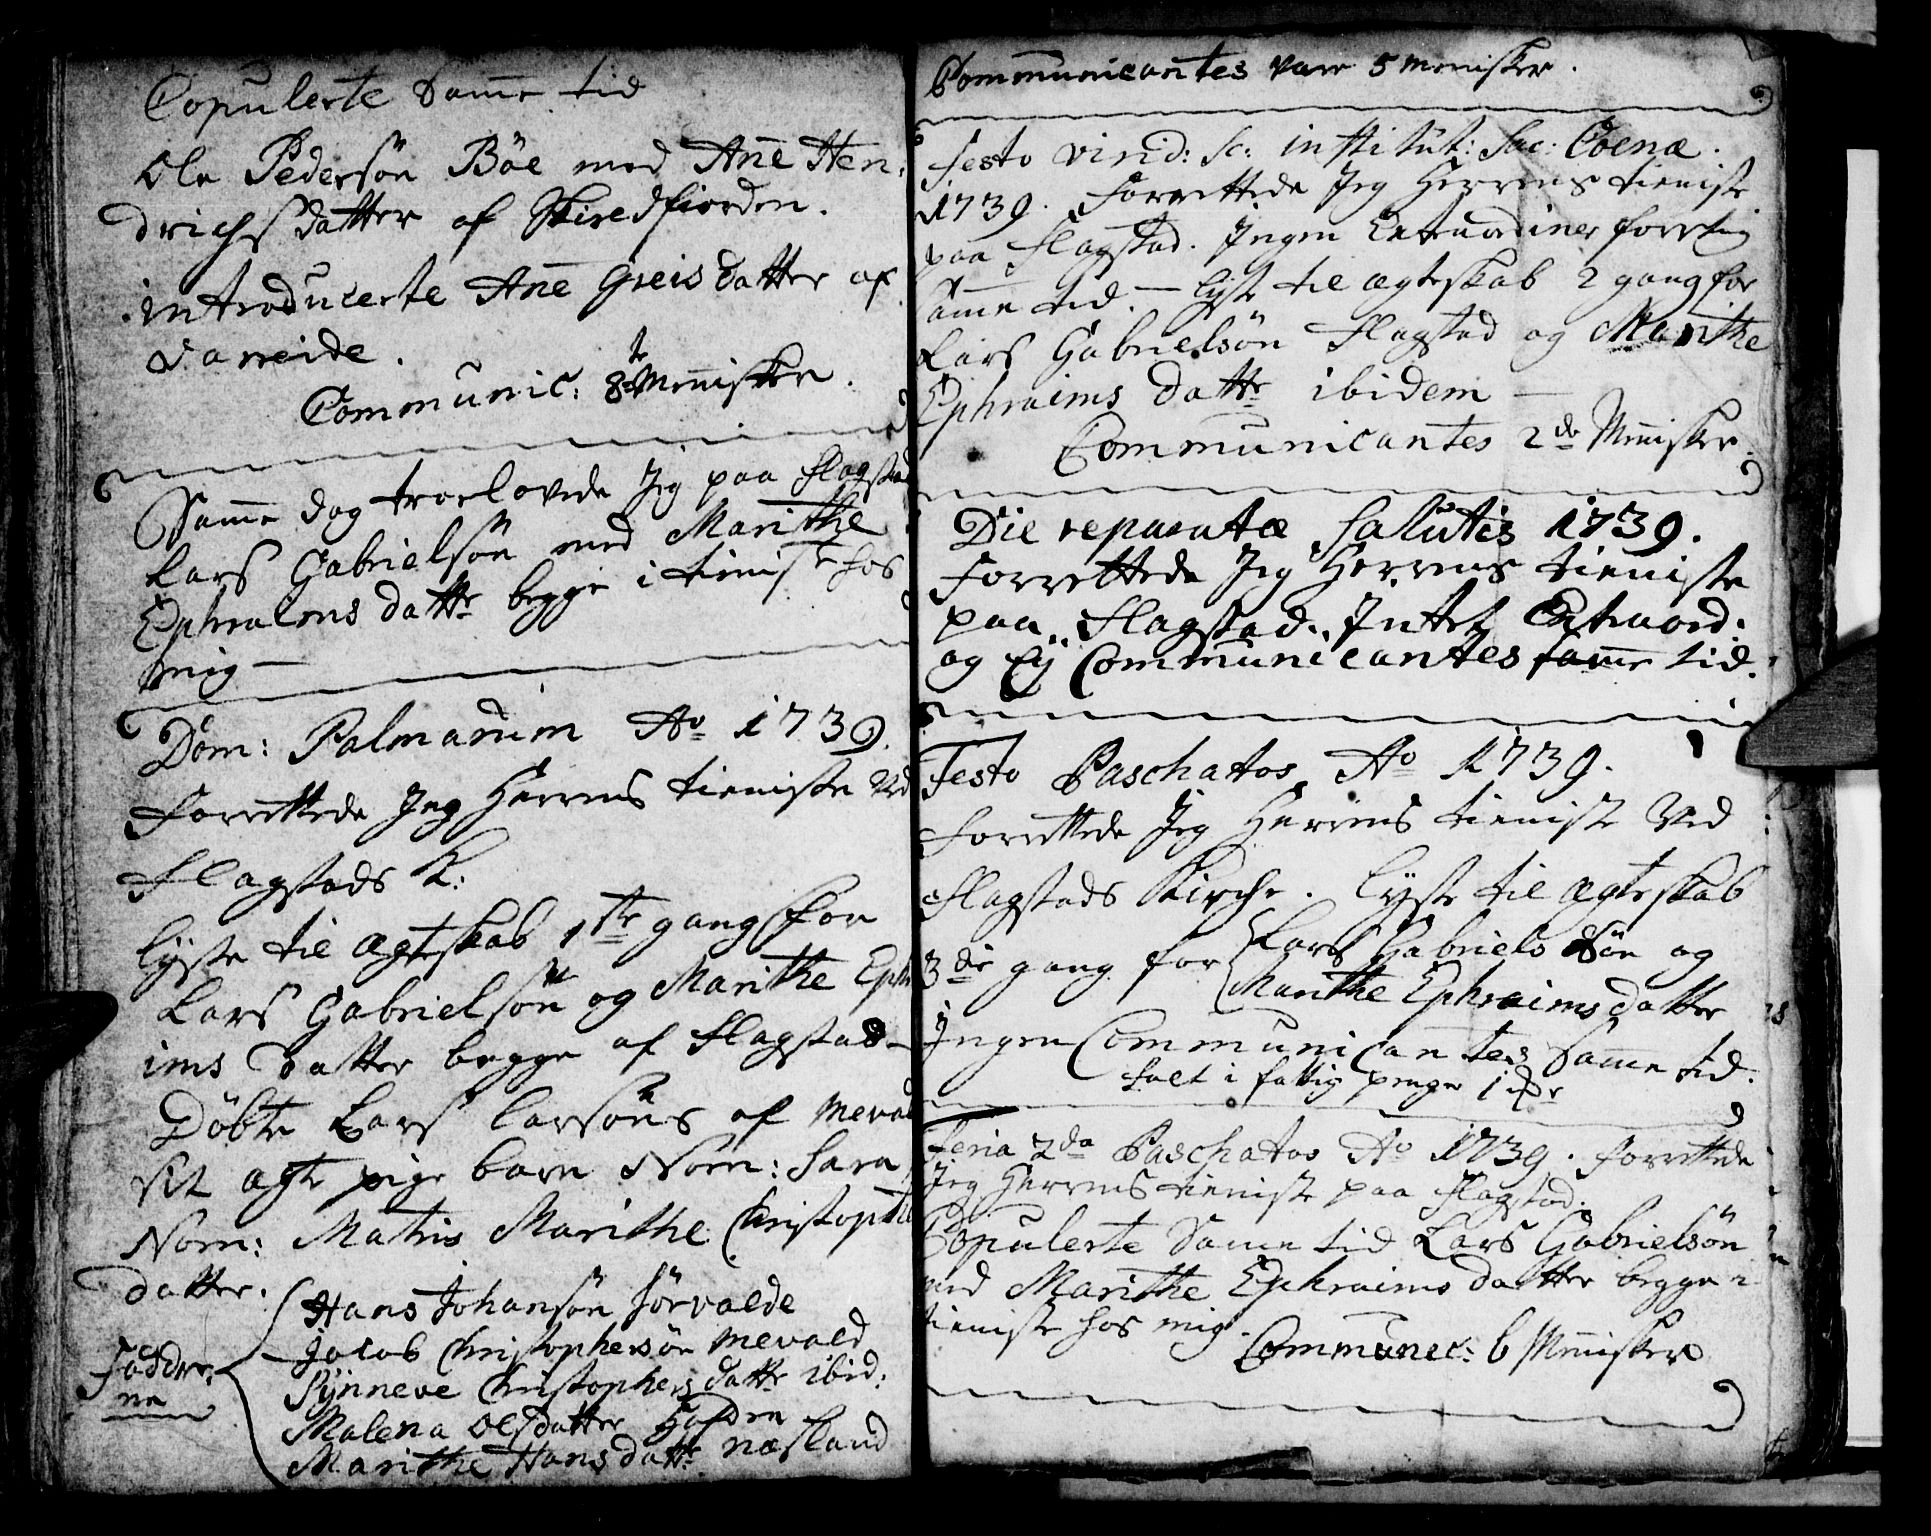 Copulerte Samme tid
Ole Pedersön Böe med Anne Hen:
drichsdatter af Skiredfiorden.
introducerte Anne Greisdatter af
Vareide.
Communic: 8te Mennisker.
Samme dag troelovede Jeg paa Flagstad
Lars Gabrielsön med Marithe
Ephraims dattr begge i tieniste hos
mig —
Dom: Palmarum Ao 1739.
Forrettede Jeg Herrens tieniste ved
Flagstads K:
lyste til ægteskab 1te gang for
Lars Gabrielsön og Marithe Eph
ims Datter begge af Flagstad —
Döbte Lars Larsöns af Mevald
sit ægte pige barn Nom: Sara
Nom: Matris Marithe Christoph
datter.
Hans Johansön Sörvalde
Jacob Christophersön Mevald
Faddre
Synneve Christophers dattr ibid:
ne
Malena Olsdatter Hofden
Marithe Hansdattr Næsland
Communicantes vare 5 Menisker.
Festo virid: sc: institut: Sac: Coenæ.
1739. Forrettede Jeg Herrens tieniste
paa Flagstad. Ingen Extraordiner forretning
samme tid. — lyste til ægteskab 2 gang for
Lars Gabrielsön Flagstad og Marithe
Ephraims dattr ibidem —
Communicantes 2de Mennisker.
Die reparatæ Salutis 1739.
Forrettede Jeg Herrens tieniste
paa Flagstad. Intet Extraord:
og Ey Communicantes samme tid.
Festo Paschatos Ao 1739.
Forrettede Jeg Herrens tieniste Ved
Flagstads Kirche. lyste til ægteskab
3de gang for Lars Gabriels Sön og
Marithe Ephraims datter
Ingen Communicantes Samme tid.
faldt i fattig penge 1
Feria 2da Paschatos Ao 1739. Forrettede
Jeg Herrens tieniste paa Flagstad.
Copulerte Samme tid Lars Gabrielsön
med Marithe Ephraims datter begge i
tieniste hos mig.
Communic: 6 Mennisker